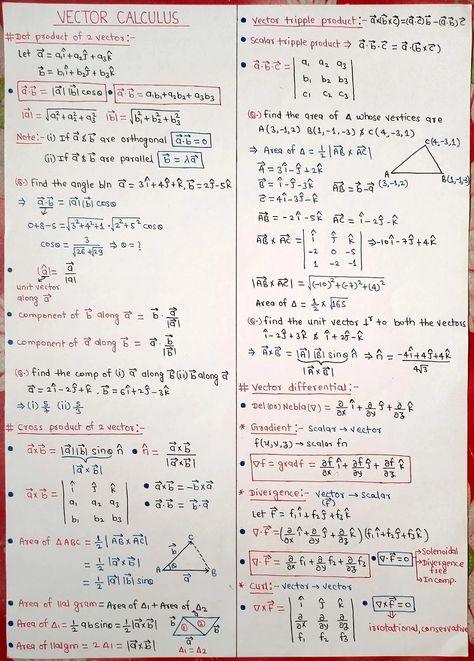 VECTOR CALCULUS
# Dot product of 2 vector:-
Let a⃗ = a₁î + a₂ĵ + a₃k̂
b⃗ = b₁î + b₂ĵ + b₃k̂
• a⃗·b⃗ = |a⃗||b⃗| cosθ • a⃗·b⃗ = a₁b₁+a₂b₂+a₃b₃
|a⃗| = √(a₁²+a₂²+a₃²) |b⃗| = √(b₁²+b₂²+b₃²)
Note:- (i) If a⃗ & b⃗ are orthogonal a⃗·b⃗=0
(ii) If a⃗ & b⃗ are parallel b⃗ = λa⃗
(Q-) Find the angle b/n a⃗ = 3î+4ĵ+k̂, b⃗=2ĵ-5k̂
⇒ a⃗·b⃗ = |a⃗||b⃗| cosθ
0+8-5 = √(3²+4²+1) · √(2²+5²) cosθ
cosθ = 3/(√26 √29) ⇒ θ = ?
• (â) = a⃗/|a⃗|
unit vector
along a⃗
• component of b⃗ along a⃗ = b⃗ · a⃗/|a⃗|
• component of a⃗ along b⃗ = a⃗ · b⃗/|b⃗|
(Q-) find the comp of (i) a⃗ along b⃗ (ii) b⃗ along a⃗
a⃗ = 2î-2ĵ+k̂, b⃗ = 6î+2ĵ-3k̂
# Cross product of 2 vector:-
• a⃗×b⃗ = |a⃗||b⃗| sinθ n̂ • n̂ = a⃗×b⃗/|a⃗×b⃗|
|a⃗×b⃗|
a⃗×b⃗ = | î ĵ k̂ | • a⃗×b⃗ = -b⃗×a⃗
a₁ a₂ a₃ • a⃗·b⃗ = b⃗·a⃗
b₁ b₂ b₃
• Area of ΔABC = 1/2 |AB⃗×AC⃗|
= 1/2 |a⃗×b⃗|
= 1/2 |a⃗||b⃗| sinθ
C b⃗ A a⃗ B
• Area of llal gram = Area of Δ₁ + Area of Δ₂
• Area of Δ₁ = 1/2 ab sinθ = 1/2 |a⃗×b⃗|
• Area of llalgm = 2 Δ₁ = |a⃗×b⃗|
b⃗ ① ② a⃗ Δ₁ = Δ₂
• Vector tripple product:- a⃗×(b⃗×c⃗)=(a⃗·c⃗)b⃗-(a⃗·b⃗)c⃗
• Scalar tripple product ⇒ a⃗·b⃗·c⃗ = a⃗·(b⃗×c⃗)
• a⃗·b⃗·c⃗ = | a₁ a₂ a₃ |
b₁ b₂ b₃
c₁ c₂ c₃
(Q-) find the area of Δ whose vertices are
A(3,-1,2) B(1,-1,-3) & C(4,-3,1)
⇒ Area of Δ = 1/2 |AB⃗×AC⃗|
A⃗ = 3î-ĵ+2k̂
B⃗ = î-ĵ-3k̂ AB⃗ = b⃗-a⃗
C⃗ = 4î-3ĵ-k̂
C(4,-3,1)
A (3,-1,2) B(1,-1,-3)
AB⃗ = -2î-5k̂ AC⃗ = î-2ĵ-k̂
AB⃗×AC⃗ = | î ĵ k̂ | ⇒ -10î-7ĵ+4k̂
-2 0 -5
1 -2 -1
|AB⃗×AC⃗| = √((-10)²+(-7)²+(4)²)
Area of Δ = 1/2 × √165
(Q-) find the unit vector ⊥ʳ to both the vectors
î-2ĵ+3k̂ & î+2ĵ-k̂
⇒ A⃗×B⃗ = |A⃗||B⃗| sinθ n̂ ⇒ n̂ = (-4î+4ĵ+4k̂)/(4√3)
|A⃗×B⃗|
# Vector differential:-
• Del (or) Nebla(∇) = ∂/∂x î + ∂/∂y ĵ + ∂/∂z k̂
* Gradient:- Scalar → vector
f(x,y,z) → scalar fn
• ∇f = gradf = ∂f/∂x î + ∂f/∂y ĵ + ∂f/∂z k̂
* Divergence:- vector → scalar
(f⃗)
Let F⃗ = f₁î+f₂ĵ+f₃k̂
∇·F⃗ = (∂/∂x î + ∂/∂y ĵ + ∂/∂z k̂)(f₁î+f₂ĵ+f₃k̂)
• ∇·F⃗ = ∂/∂x f₁ + ∂/∂y f₂ + ∂/∂z f₃ • ∇·F⃗=0 → Solenoidal
→ Divergence free
→ Incomp.
* Curl:- vector → vector
• ∇×F⃗ = | î ĵ k̂ | • ∇×F⃗=0
∂/∂x ∂/∂y ∂/∂z
f₁ f₂ f₃
irrotational, conservative